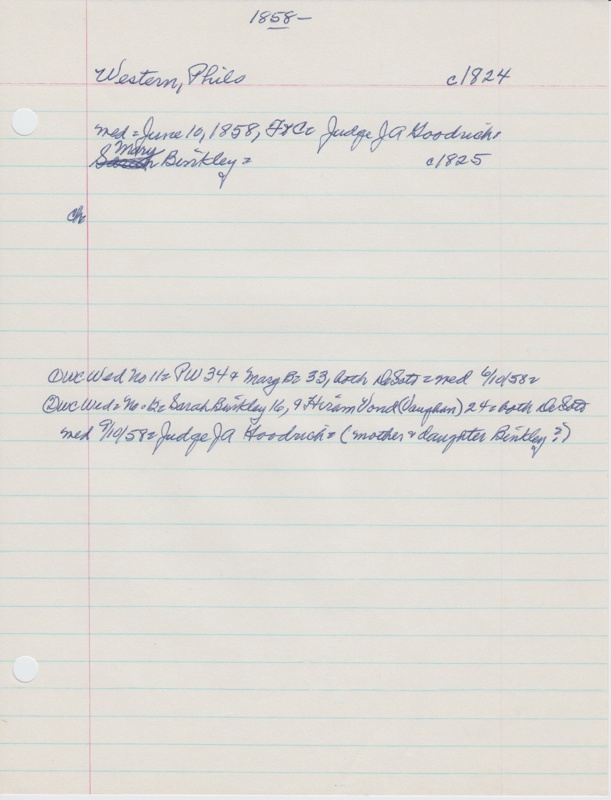 1858-
Western, Philo c1824
med = June 10, 1858, Ft Co Judge J A Goodrich =
Mary
Sarah Binkley = c1825
ch
① WC Wed No 11 = PW 34 & Mary B = 33, both DeSoto = med 6/10/58 =
② WC Wed = No 12 = Sarah Binkley 16, & Hiram Vond (Vaughan) 24 = both DeSoto
med 9/10/58 = Judge JA Goodrich = (mother & daughter Binkley?)